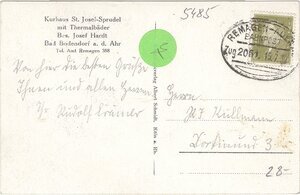 Kurhaus St. Josef-Sprudel
mit Thermalbäder
Bes. Josef Hardt
Bad Bodendorf a. d. Ahr
Tel. Amt Remagen 388
5485
REMAGEN-
BAHNPOST
Zug 2081
Von hier die besten Grüße
Ihnen und allen Herren
Rudolf Krämer
Verlag Albert Schmidt, Köln a. Rh.
Herrn
Kullmann
Dortmund 3
28.-